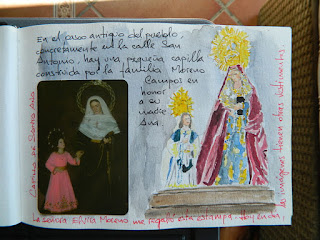 En el casco antiguo del pueblo,
concretamente en la calle San
Antonio, hay una pequeña capilla
construida por la familia Moreno
Campos en
honor
a su
madre
Ana.
Camino de Santa Ana
La señora Moreno me regaló esta estampa. Hoy en día,
las imágenes tienen otras vestimentas